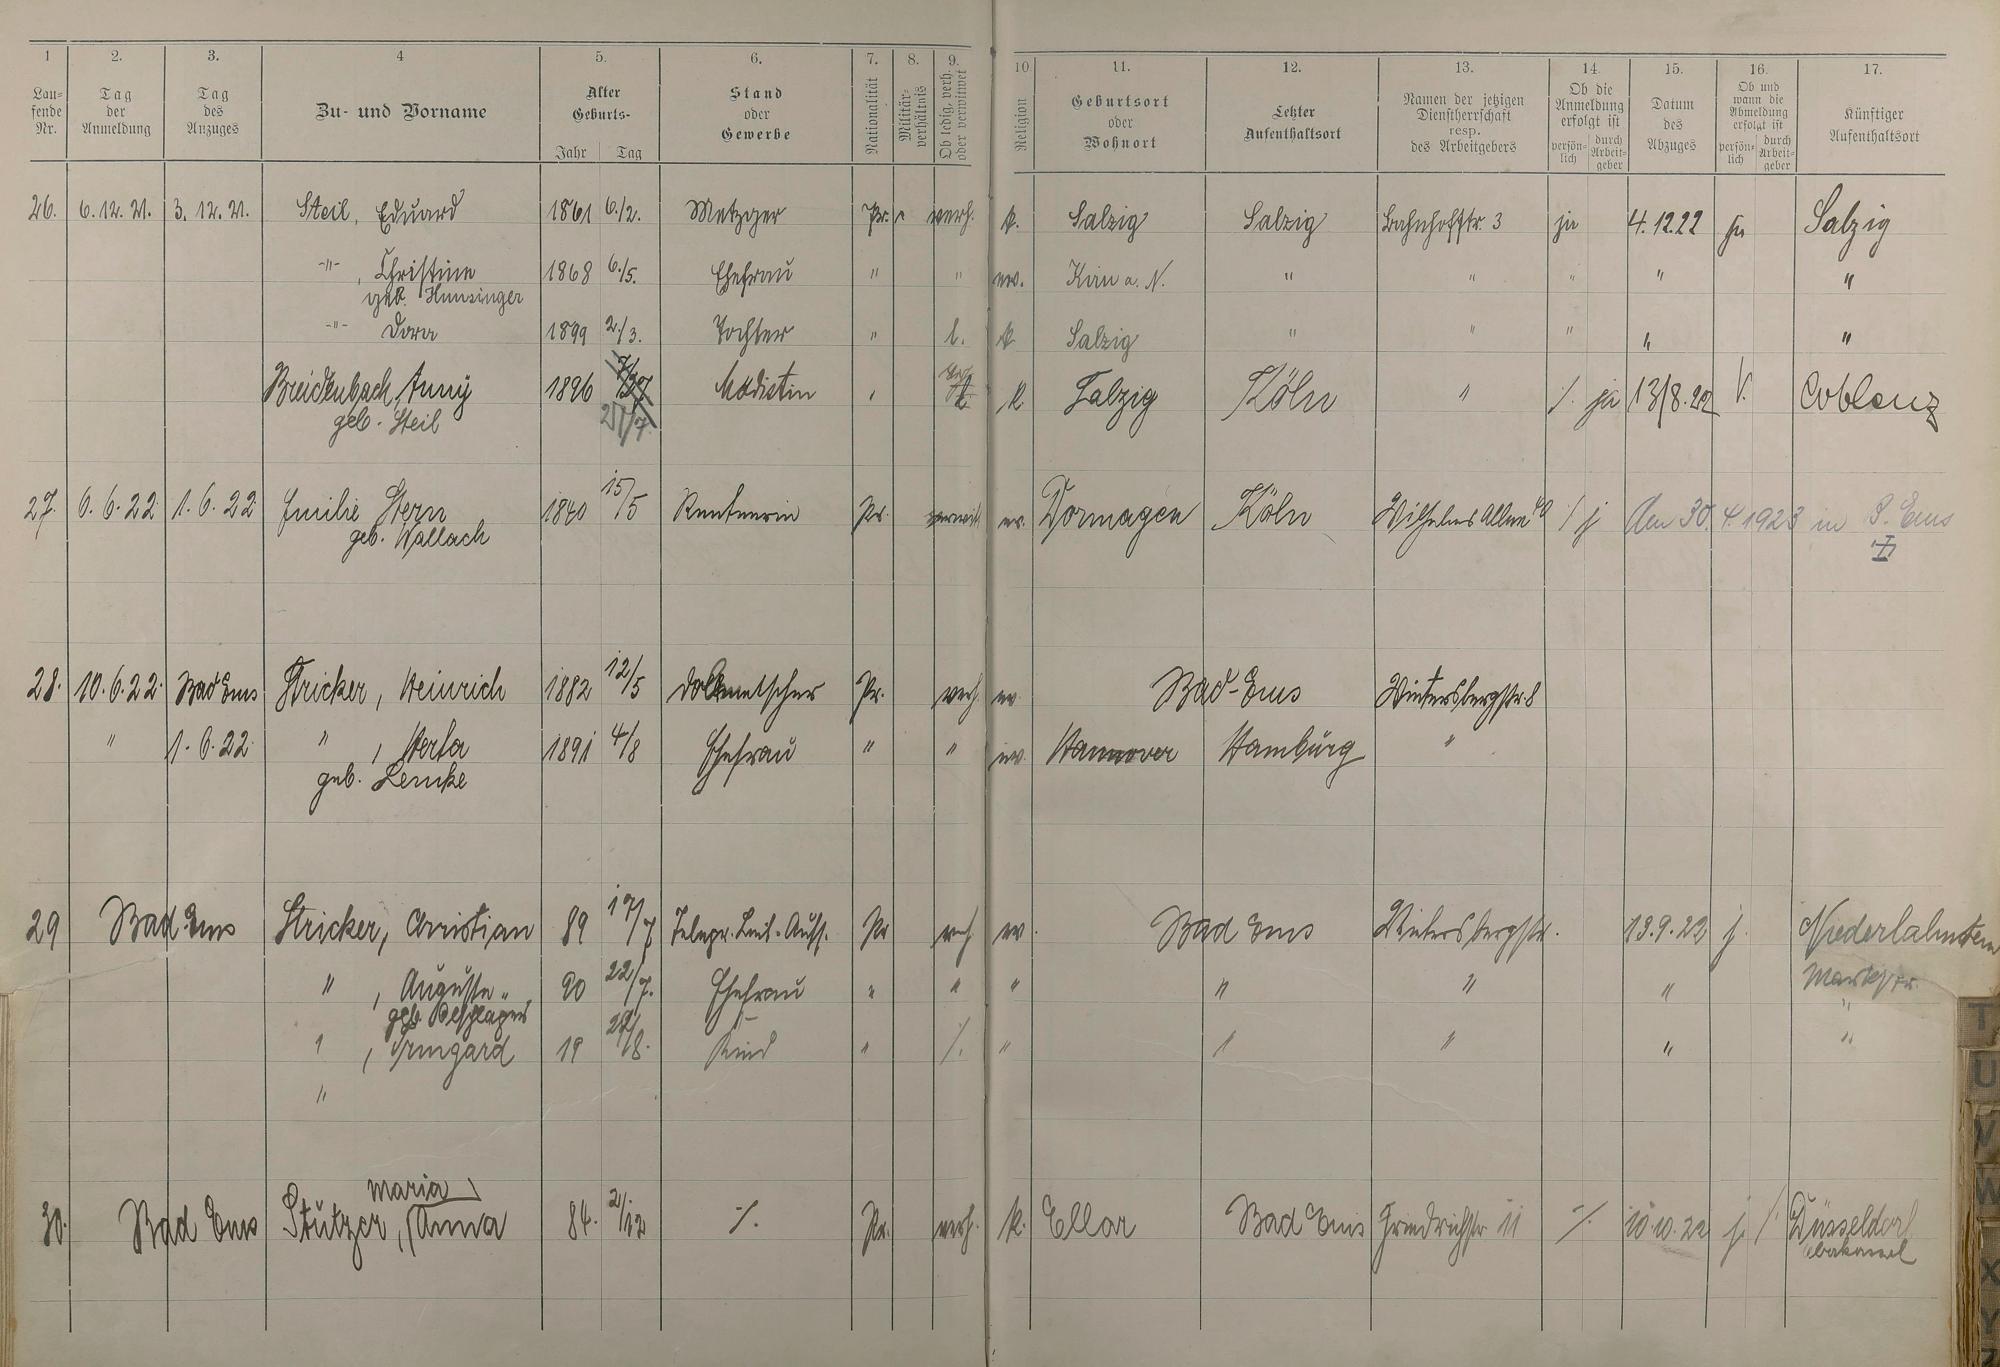 1 2. 3. 4 5. 6. 7. 8. 9. 10. 11. 12. 13. 14. 15. 16. 17.
Lau-fende Nr. Tag der Anmeldung Tag des Anzuges Zu- und Vorname Alter Geburts- Jahr Tag Stand oder Gewerbe Nationalität Militär-verhältnis Ob ledig, verh. oder verwitwet Religion Geburtsort oder Wohnort Letzter Aufenthaltsort Namen der jetzigen Dienstherrschaft resp. des Arbeitgebers Ob die Anmeldung erfolgt ist persön-lich durch Arbeit-geber Datum des Abzuges Ob und wann die Abmeldung erfolgt ist persön-lich durch Arbeit-geber Künftiger Aufenthaltsort
26. 6.12.21. 3.12.21. Steil, Eduard 1861 6./2. Metzger Pr. verh. k. Salzig Salzig Bahnhofstr. 3 ja 4.12.22 ja Salzig
-"- , Christine 1868 6./5. Ehefrau " " ev. Kirn a. N. " " " " "
geb. Hunsinger
-"- Dora 1899 2./3. Tochter " l. k. Salzig " " " " "
Breidenbach, Anny 1896 Modistin " k. Salzig Köln " /. ja 13/8.22 Coblenz
geb. Steil 27/7.
27. 6.6.22 1.6.22 Emilie Stern 1840 15/5 Rentnerin Pr. verwit. ev. Dormagen Köln Wilhelms Allee / j Am 30.4.1923 in B. Ems
geb. Wallach
28. 10.6.22. Bad Ems Stricker, Heinrich 1882 12/5 Dolmetscher Pr. verh. ev. Bad-Ems Wintersbergstr. 8
" 1.6.22. " , Herta 1891 4/8 Ehefrau " " ev. Hannover Hamburg "
geb. Lemke
29 Bad Ems Stricker, Christian 89 17/7 Telegr. Leit. Aufs. Pr verh ev. Bad Ems Wintersbergstr. 13.9.22 j. Niederlahnstein
" , Auguste " 90 22/7. Ehefrau " " " " " " Marktstr.
geb. "
" , Irmgard 19 /8. Kind " /. " " " " "
"
Maria
30. Bad Ems Stutzer, Anna 84. 2/12 /. Pr. verh. k. Ellar Bad Ems Friedrichstr 11 /. 10.10.22 j. / Düsseldorf
Oberkassel
T
U
V
W
X
Y
Z